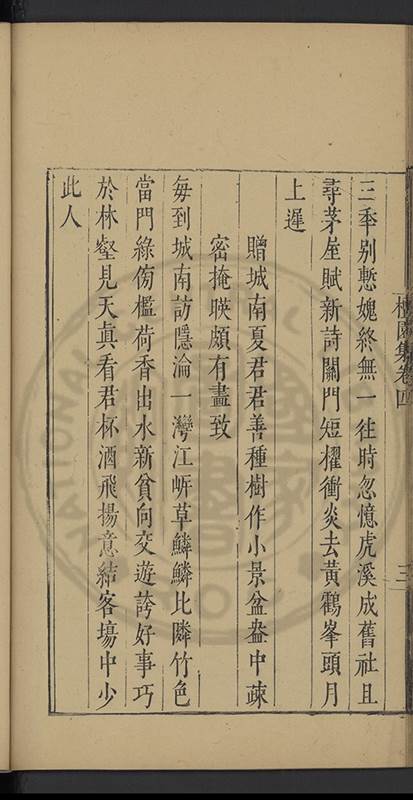 三季別慙媿終無一徃時忽憶虎溪成舊社且
尋茅屋賦新詩關門短櫂衝炎去黃鸖峯頭月
上遲
贈城南夏君君善種樹作小景盆盎中疎
密掩暎頗有畫致
每到城南訪隱淪一灣江㟁草鱗鱗比隣竹色
當門綠傍檻荷香出水新貧向交遊誇好事巧
於林壑見天眞看君杯酒飛揚意結客塲中少
此人
園集卷四
三